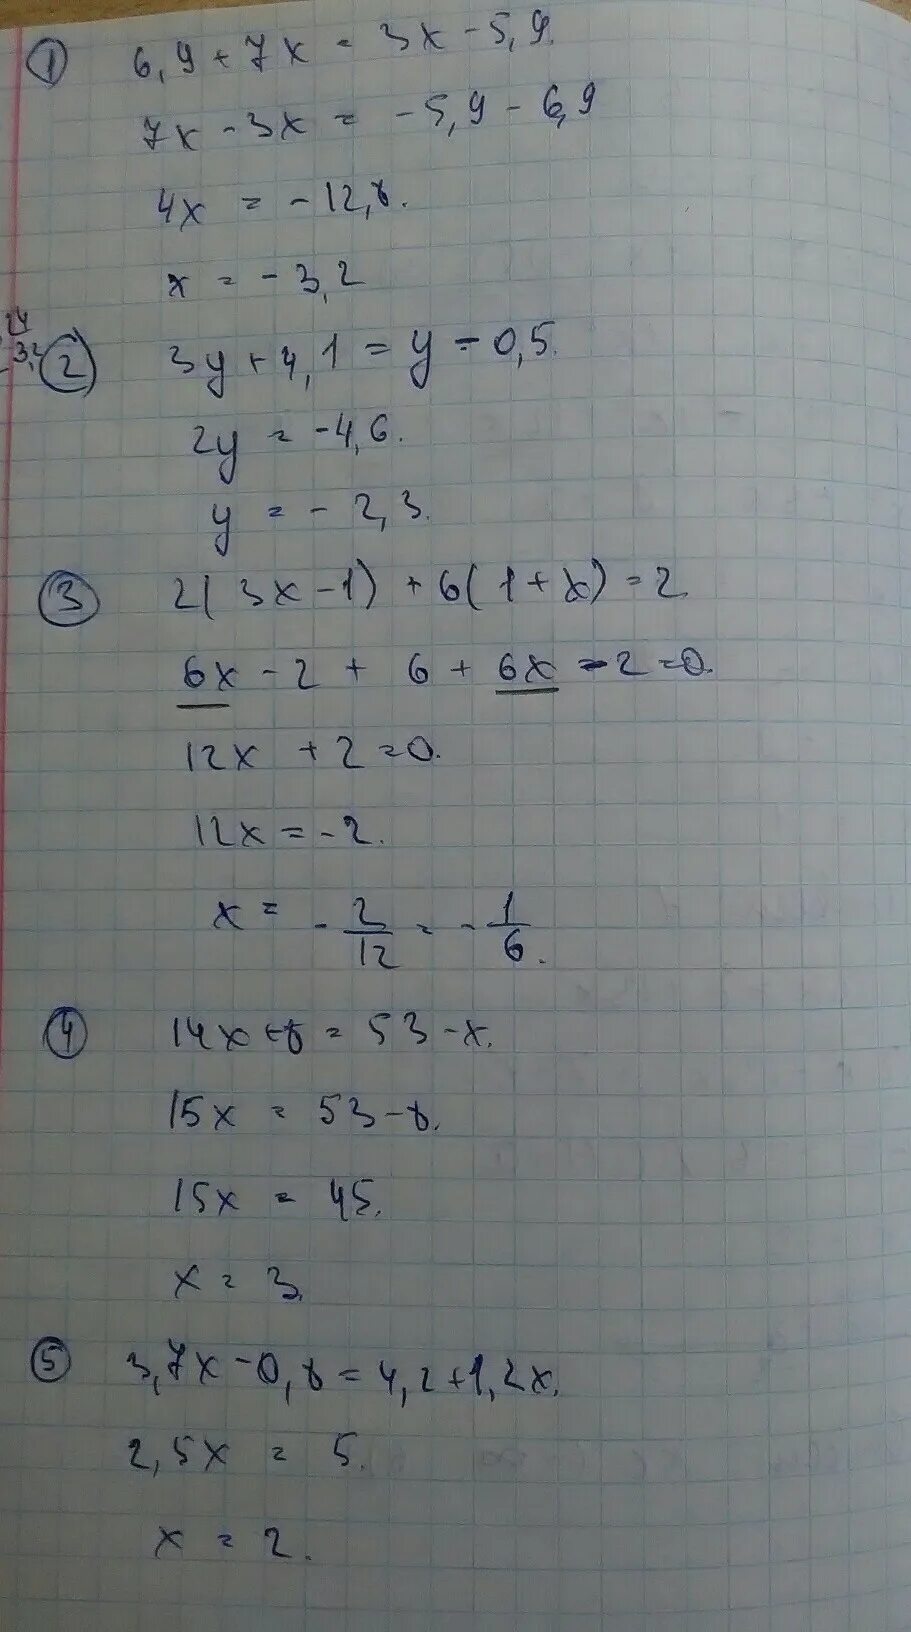 ① 6,9 + 7x = 3x - 5,9.
7x - 3x = - 5,9 - 6,9
4x = - 12,8.
x = - 3,2
② 3y + 4,1 = y - 0,5.
2y = - 4,6.
y = - 2,3.
③ 2(3x - 1) + 6(1 + x) = 2
6x - 2 + 6 + 6x - 2 = 0.
12x + 2 = 0.
12x = - 2.
x = - 2/12 = - 1/6.
④ 14x + 8 = 53 - x.
15x = 53 - 8.
15x = 45.
x = 3.
⑤ 3,7x - 0,8 = 4,2 + 1,2x.
2,5x = 5.
x = 2.